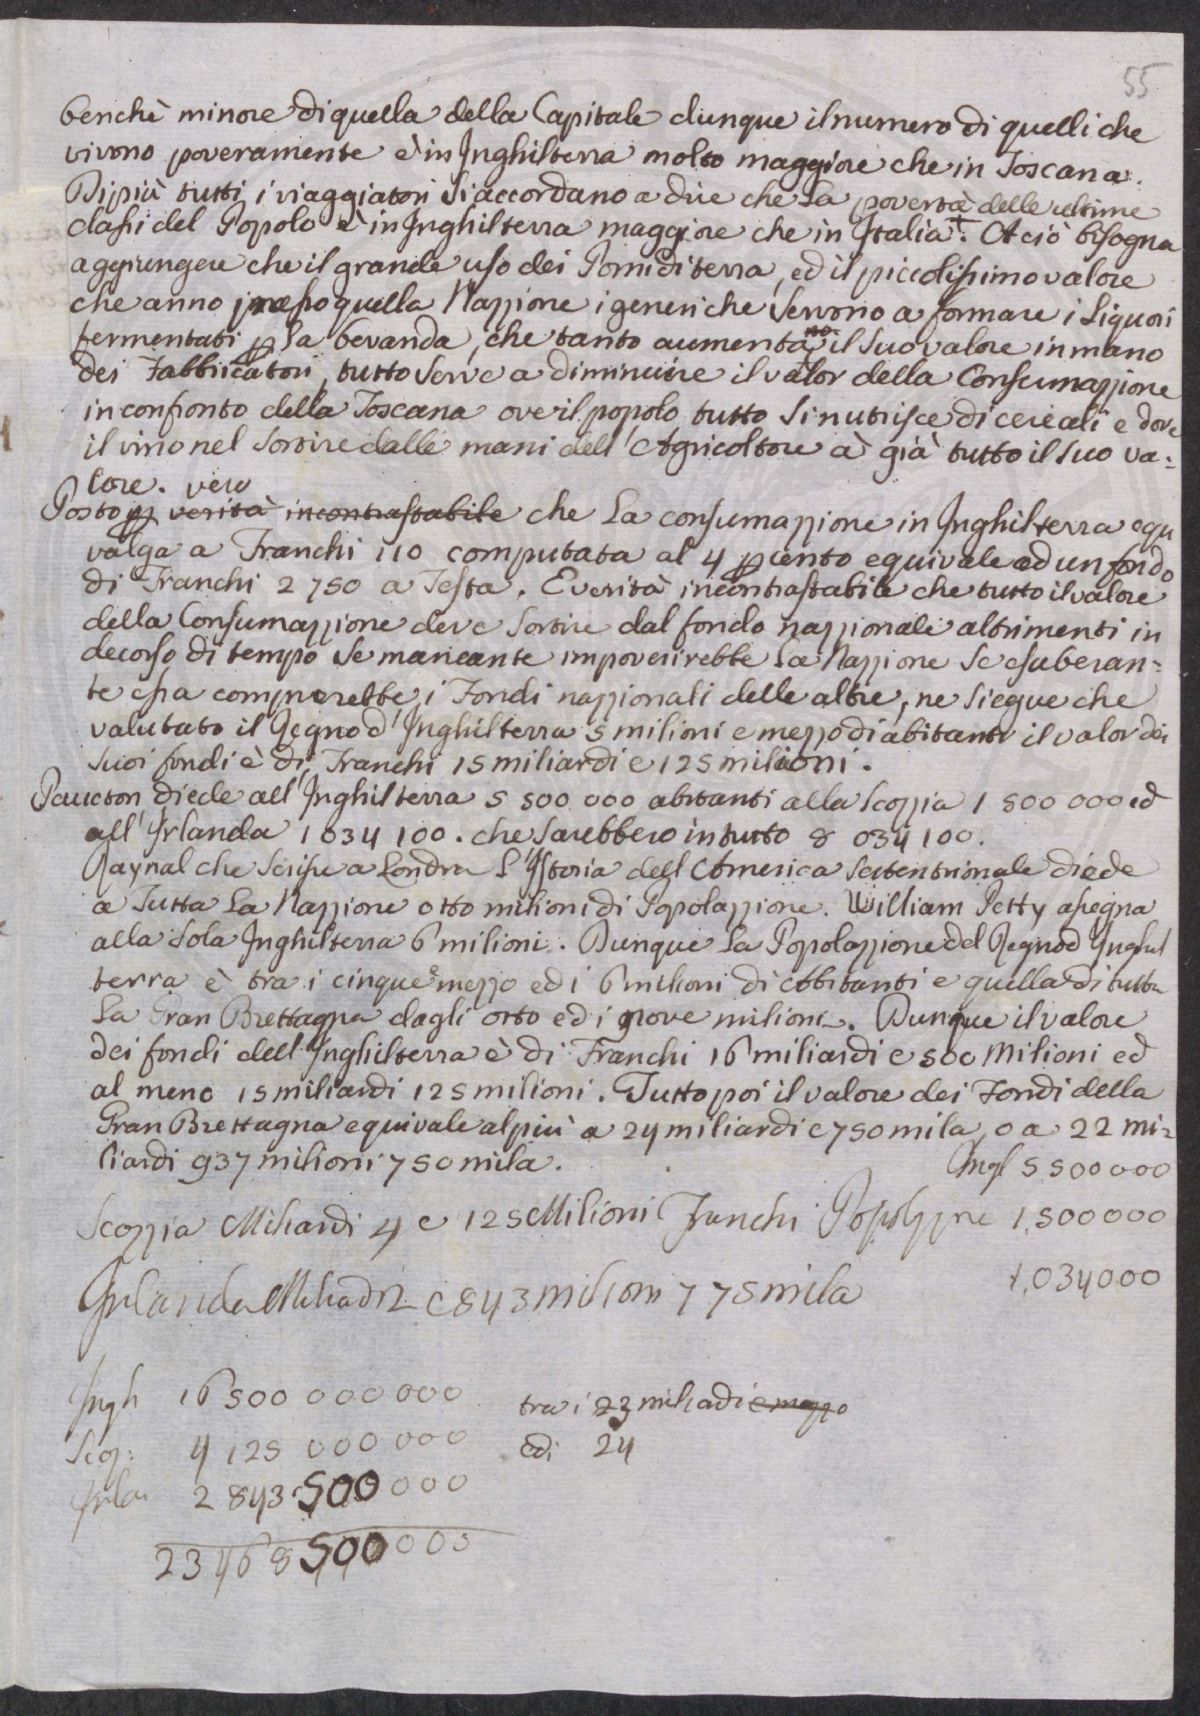 55
benchè minore di quella della Capitale dunque il numero di quelli che
vivono poveramente è in Inghilterra molto maggiore che in Toscana.
Di più tutti i viaggiatori si accordano a dire che la povertà delle ultime
classi del Popolo è in Inghilterra maggiore che in Italia. + A ciò bisogna
aggiungere che il grande uso dei Pomi di terra, ed il piccolissimo valore
che anno presso quella Nazzione i generi che servono a formare i Liquori
fermentati p la bevanda, che tanto aumentano il suo valore in mano
dei Fabbricatori, tutto serve a diminuire il valor della Consumazzione
in confronto della Toscana ove il popolo tutto si nutrisce di cereali e dove
il vino nel sortire dalle mani dell'Agricoltore à già tutto il suo va=
lore. vero
Posto p verità incontrastabile che La consumazzione in Inghilterra equi
valga a Franchi 110 computata al 4 p ciento equivale ad un fondo
di Franchi 2750 a Testa. E verità incontrastabile che tutto il valore
della Consumazzione deve sortire dal fondo nazzionale altrimenti in
decorso di tempo se mancante impoverirebbe la Nazzione se esuberan=
te essa comprerebbe i Fondi nazzionali delle altre, ne siegue che
valutato il Regno d'Inghilterra 5 milioni e mezzo di abitanti il valor dei
suoi fondi è di Franchi 15 miliardi e 125 milioni.
Paucton diede all'Inghilterra 5 500 000 abitanti alla Scozzia 1 500 000 ed
all'Irlanda 1 034 100. che sarebbero in tutto 8 034 100.
Raynal che scrisse a Londra L'Istoria dell'America settentrionale diede
a Tutta La Nazzione otto milioni di Popolazzione. William Petty assegna
alla sola Inghilterra 6 milioni. Dunque la Popolazzione del Regno d'Inghil
terra è tra i cinque e mezzo ed i 6 milioni di Abbitanti e quella di tutta
La Gran Brettagna dagli otto ed i nove milioni. Dunque il valore
dei fondi dell'Inghilterra è di Franchi 16 miliardi e 500 Milioni ed
al meno 15 miliardi 125 milioni. Tutto poi il valore dei Fondi della
Gran Brettagna equivale al più a 24 miliardi e 750 mila, o a 22 mi=
liardi 937 milioni 750 mila. Ingl 5 500 000
Scozzia Miliardi 4 e 125 Milioni Franchi Popolzzne 1,500000
Irlanda Miliadi 2 e 843 milioni 775 mila 1,034000
Ingh 16 500 000 000 tra i 23 miliadi e mezzo
Scoz: 4 125 000 000 edi 24
Irla 2 843 500 000
23 468 500 000